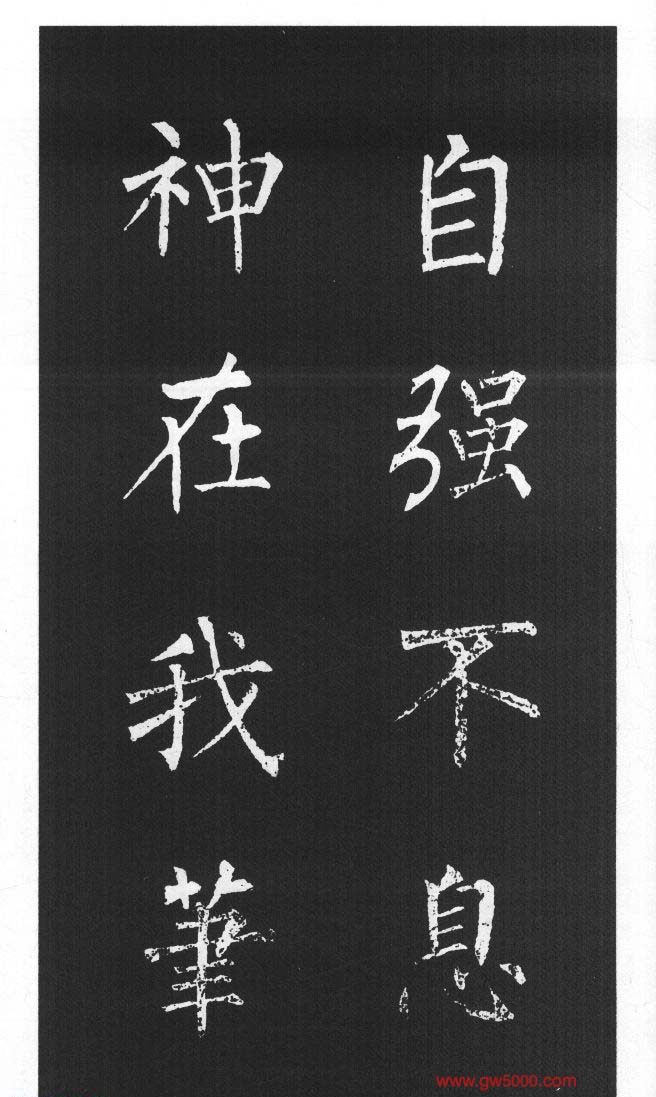 自强不息
神在我筆
www.gw5000.com